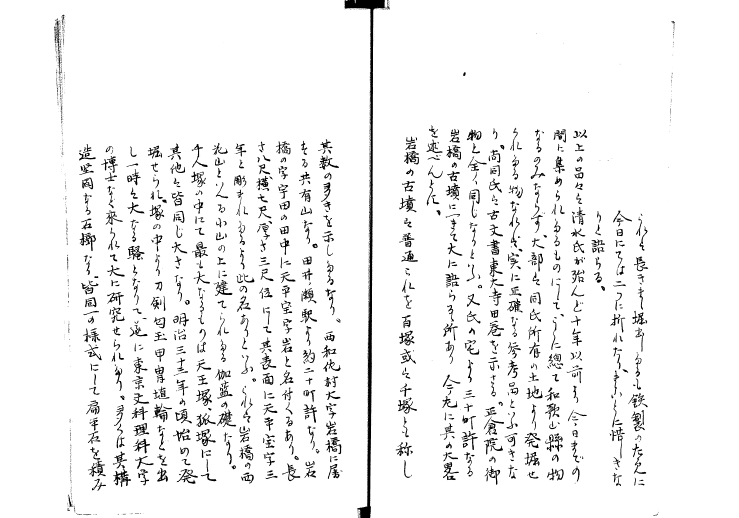 これも長きまゝ堀出しあるも鉄製のために
今日にては二つに折れたり、まことに惜しきな
りと語らる。
以上の品々は清水氏が殆んど十年以前より今日までの
間に集められたるものにして、うに總て和歌山縣の物
なるのみならず大部は同氏所有の土地より発掘せ
られたる物なれば、実に正確なる参考品といふ可きな
り。尚同氏は古文書東大寺田巻を示さる。正倉院の御
物と全く同じなりといふ。又氏の宅より三十町許なる
岩橋の古墳につきて大に語らるゝ所あり 今左に其の大畧
を述べんとす。
岩橋の古墳は普通これを百塚或は千塚と称し
其数の多きを示しゐるなり。西和佐村大字岩橋に屬
する共有山なり。田井ノ瀬駅より約二十町許なり。岩
橋の字宇田の田中に天平宝字岩と名付くるあり。長
さ八尺横七尺、厚さ三尺位にして其表面に天平宝字三
年と彫まれあるより此の名ありといふ。これは岩橋の西
丸山といへる小山の上に建てられたる伽藍の礎なり。
千人塚の中にて最も大なるものは天王塚、狐塚にして
其他は皆同じ大さなり。明治三十三年の頃始めて発
堀せられ、塚の中より刀剣勾玉甲冑埴輪などを出
し一時は大なる騒となりて、遂に東京文科理科大学
の博士など来られて大に研究せられたり。多くは其構
造堅固なる石槨なり、皆同一の様式にして扁平石を積み